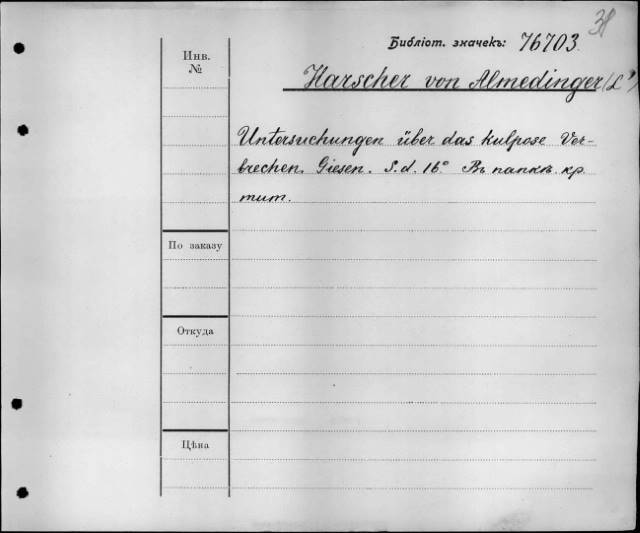 38
Библіот. значекъ: 76703
Инв.
№
Harscher von Almedinger (L.)
Untersuchungen über das kulpose Ver-
brechen. Giesen. S.d. 16° Въ папкѣ кр.
тит.
По заказу
Откуда
Цѣна